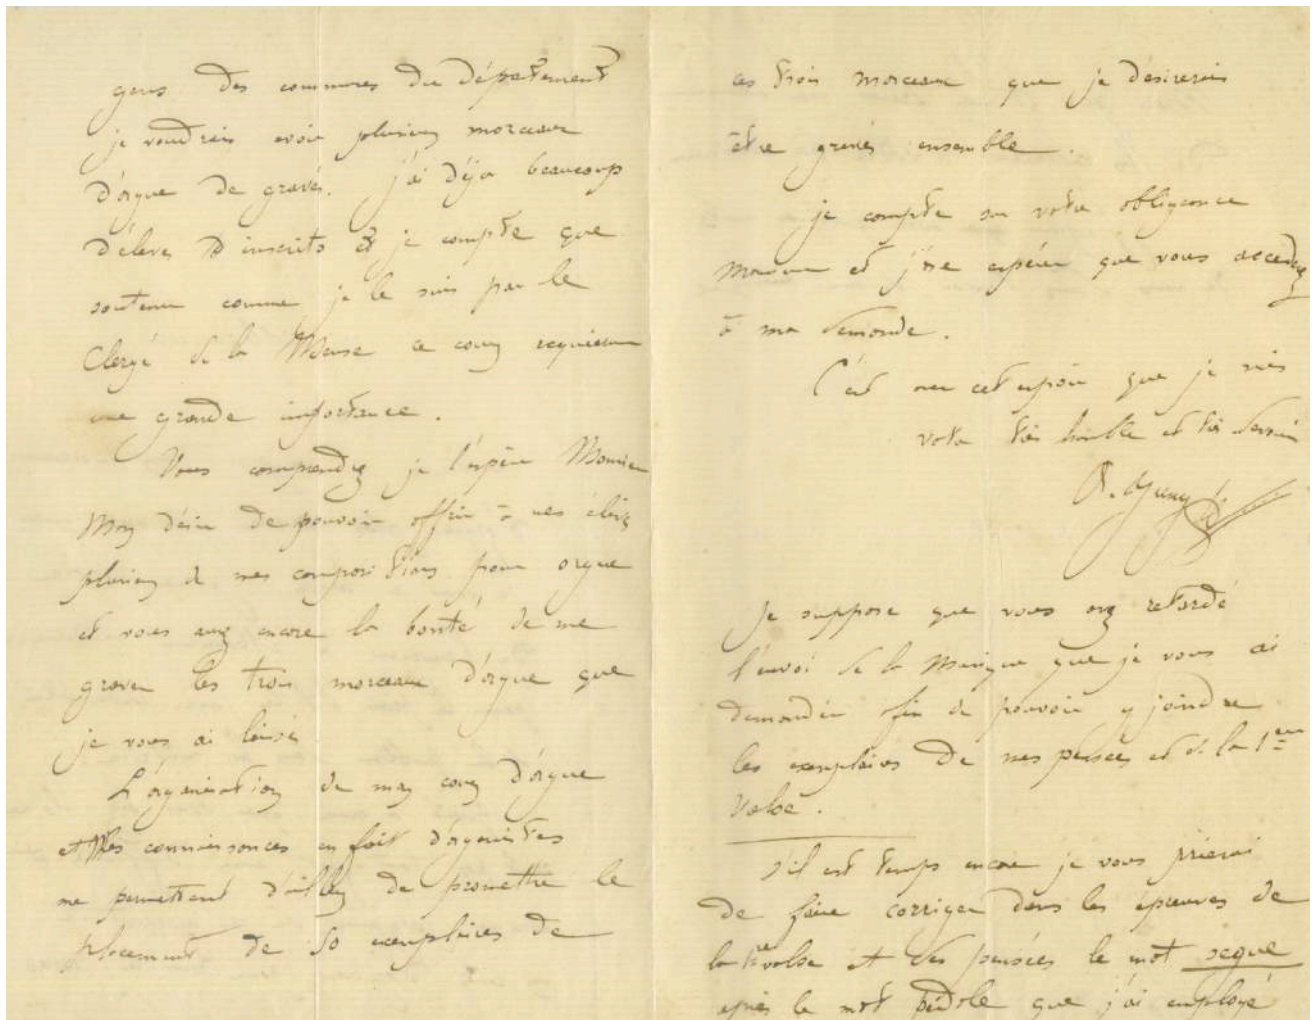 gens des communes du département
je voudrais avoir plusieurs morceaux
d'orgue de gravés. j'ai déjà beaucoup
d'élèves inscrits et je compte que
soutenu comme je le suis par le
Clergé de la Meuse ce cours
une grande importance.
Vous comprendrez je l'espère Monsieur
Mon désir de pouvoir offrir à mes élèves
plusieurs de mes compositions pour orgue
et vous aurez encore la bonté de me
graver les trois morceaux d'orgue que
je vous ai laissés
L'organisation de mon cours d'orgue
et Mes connaissances en fait d'organistes
me permettent d'ailleurs de promettre le
placement de 50 exemplaires de
ces trois morceaux que je désirerais
être gravés ensemble.
je compte sur votre obligeance
Monsieur et j'ose espérer que vous accéderez
à ma demande.
C'est avec cet espoir que je suis
votre très humble et très
je suppose que vous avez retardé
l'envoi de la Musique que je vous ai
demandée afin de pouvoir y joindre
les exemplaires de mes pensées et de la 1ère
Valse.
s'il est temps encore je vous prierai
de faire corriger dans les épreuves de
la 1re valse et des pensées le mot segue
après le mot pédale que j'ai employé